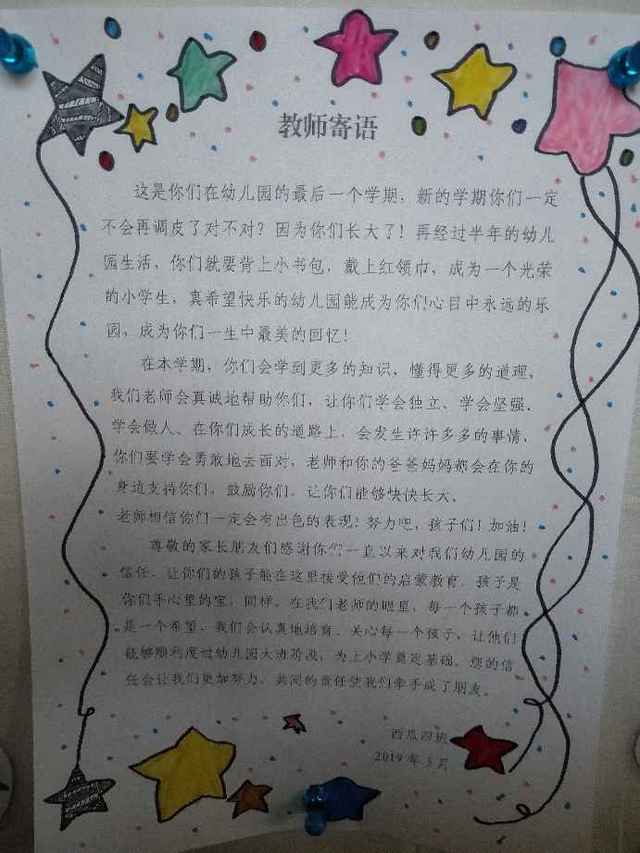 教师寄语
这是你们在幼儿园的最后一个学期，新的学期你们一定
不会再调皮了对不对？因为你们长大了！再经过半年的幼儿
园生活，你们就要背上小书包，戴上红领巾，成为一个光荣
的小学生，真希望快乐的幼儿园能成为你们心目中永远的乐
园，成为你们一生中最美的回忆！
在本学期，你们会学到更多的知识，懂得更多的道理，
我们老师会真诚地帮助你们，让你们学会独立、学会坚强、
学会做人、在你们成长的道路上，会发生许许多多的事情，
你们要学会勇敢地去面对，老师和你的爸爸妈妈都会在你的
身边支持你们，鼓励你们，让你们能够快快长大。
老师相信你们一定会有出色的表现！努力吧，孩子们！加油！
尊敬的家长朋友们感谢你们一直以来对我们幼儿园的
信任，让你们的孩子能在这里接受他们的启蒙教育，孩子是
你们手心里的宝，同样，在我们老师的眼里，每一个孩子都
是一个希望，我们会认真地培育、关心每一个孩子，让他们
能够顺利度过幼儿园大班阶段，为上小学奠定基础。您的信
任会让我们更加努力，共同的责任使我们牵手成了朋友。
西瓜四班
2019 年 3 月